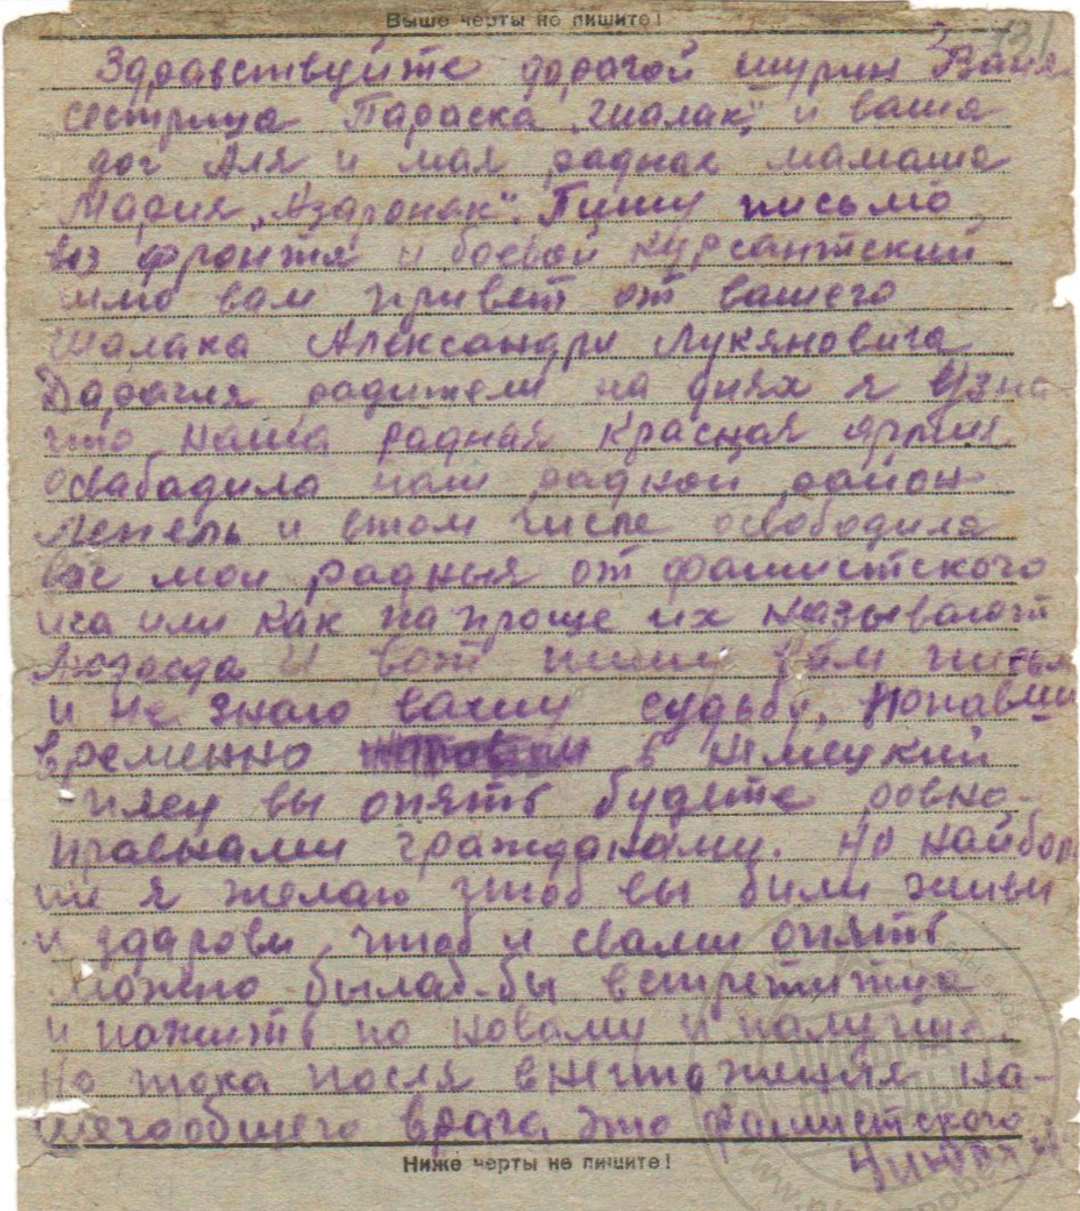 Выше черты не пишите!
131
Здравствуйте дорагой шурин Ваня
сестрица Параска „Шалак“, и ваша
доч Аля и мая радная мамаша
Мария „Азаронак“. Пишу письмо
из фронтя и боевой курсантский
шлю вам привет от вашего
Шалака Александри Лукяновича
Дарагия радители на днях я Узна
что наша радная Красная армия
освабадила наш радной район
Лепель и втом числе освободила
вас мои радныя от фашистского
ига или как папроще их называют
людаеда И вот пишу вам письм
и не знаю вашу судьбу. Попавши
временно в немецкий
плен вы опять будете ровно-
правнами гражданами. Но найбол
ше я желаю чтоб вы били живи
и здарови, чтоб и свами опять
можно былаб-бы встретитца
и пажить по новаму и палучше.
Но тока после внештажения на-
шегообщего врага, это фашистского
Ниже черты не пишите!